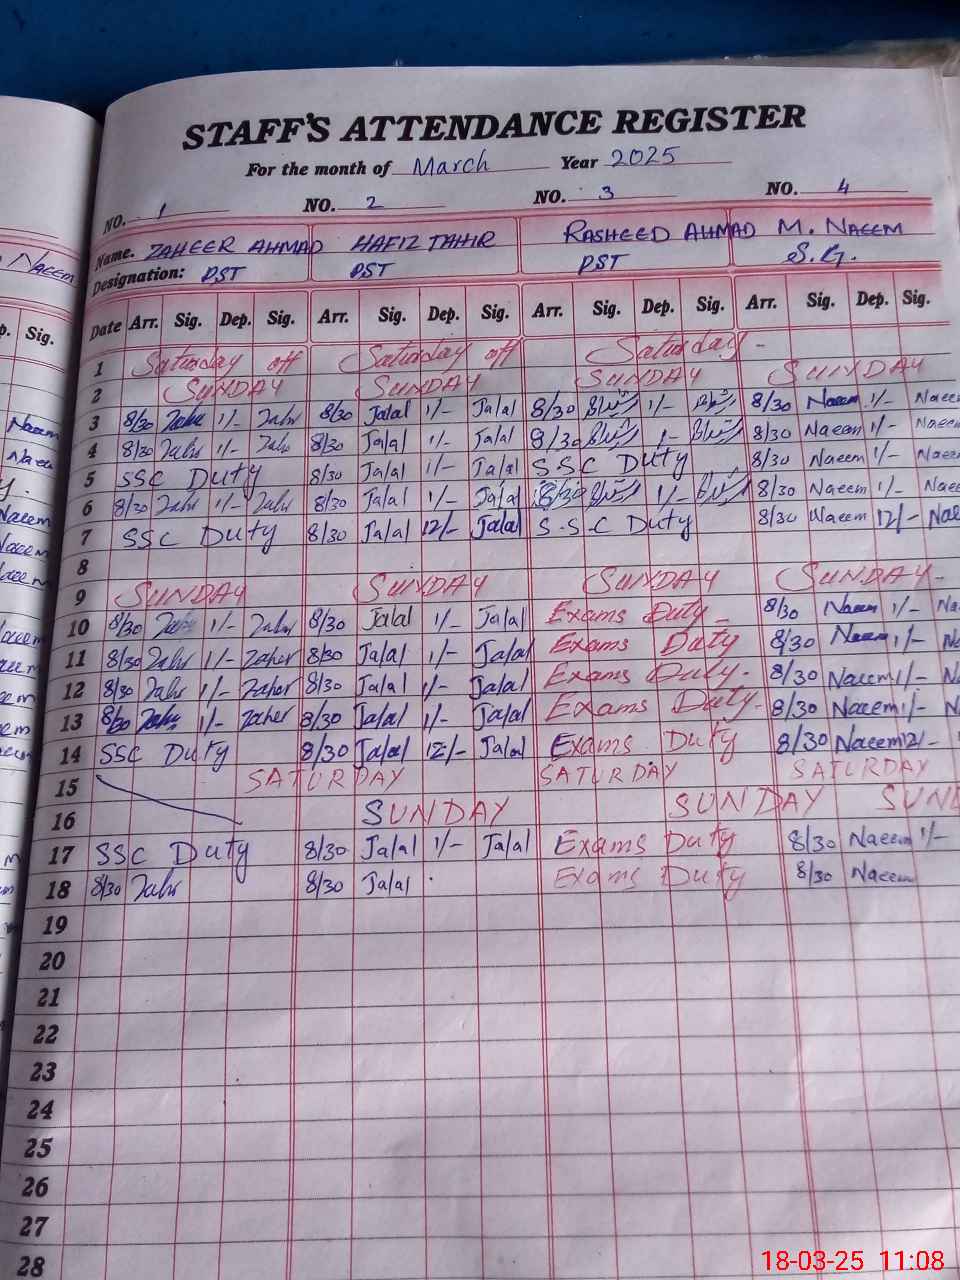 STAFF'S ATTENDANCE REGISTER
For the month of March Year 2025
NO. 1 NO. 2 NO. 3 NO. 4
Name. ZAHEER AHMAD HAFIZ TAHIR RASHEED AHMAD M. NAEEM
Designation: PST PST PST S.G.
Date Arr. Sig. Dep. Sig. Arr. Sig. Dep. Sig. Arr. Sig. Dep. Sig. Arr. Sig. Dep. Sig.
1 Saturday off Saturday off Saturday -
2 SUNDAY SUNDAY SUNDAY SUNDAY
3 8/30 Zahr 1/- Zahr 8/30 Jalal 1/- Jalal 8/30 1/- 8/30 Naeem 1/- Naeem
4 8/30 Zahr 1/- Zahr 8/30 Jalal 1/- Jalal 8/30 1- 8/30 Naeem 1/- Naeem
5 SSC Duty 8/30 Jalal 1/- Jalal SSC Duty 8/30 Naeem 1/- Naeem
6 8/30 Zahr 1/- Zahr 8/30 Jalal 1/- Jalal 8/30 1/- 8/30 Naeem 1/- Naee
7 SSC Duty 8/30 Jalal 12/- Jalal S.S.C Duty 8/30 Naeem 12/- Nae
8
9 SUNDAY SUNDAY SUNDAY SUNDAY-
10 8/30 Zahr 1/- Zahr 8/30 Jalal 1/- Jalal Exams Duty - 8/30 Naeem 1/- Na
11 8/30 Zahr 1/- Zaher 8/30 Jalal 1/- Jalal Exams Duty 8/30 Naeem 1/- N
12 8/30 Zahr 1/- Zaher 8/30 Jalal 1/- Jalal Exams Duty- 8/30 Naeem 1/- N
13 8/30 Zahr 1/- Zaher 8/30 Jalal 1/- Jalal Exams Duty- 8/30 Naeem 1/- N
14 SSC Duty 8/30 Jalal 12/- Jalal Exams Duty 8/30 Naeem 12/-
15 SATURDAY SATURDAY SATURDAY
16 SUNDAY SUNDAY SUND
17 SSC Duty 8/30 Jalal 1/- Jalal Exams Duty 8/30 Naeem 1/-
18 8/30 Zahr 8/30 Jalal Exams Duty 8/30 Naeem
19
20
21
22
23
24
25
26
27
28
18-03-25 11:08